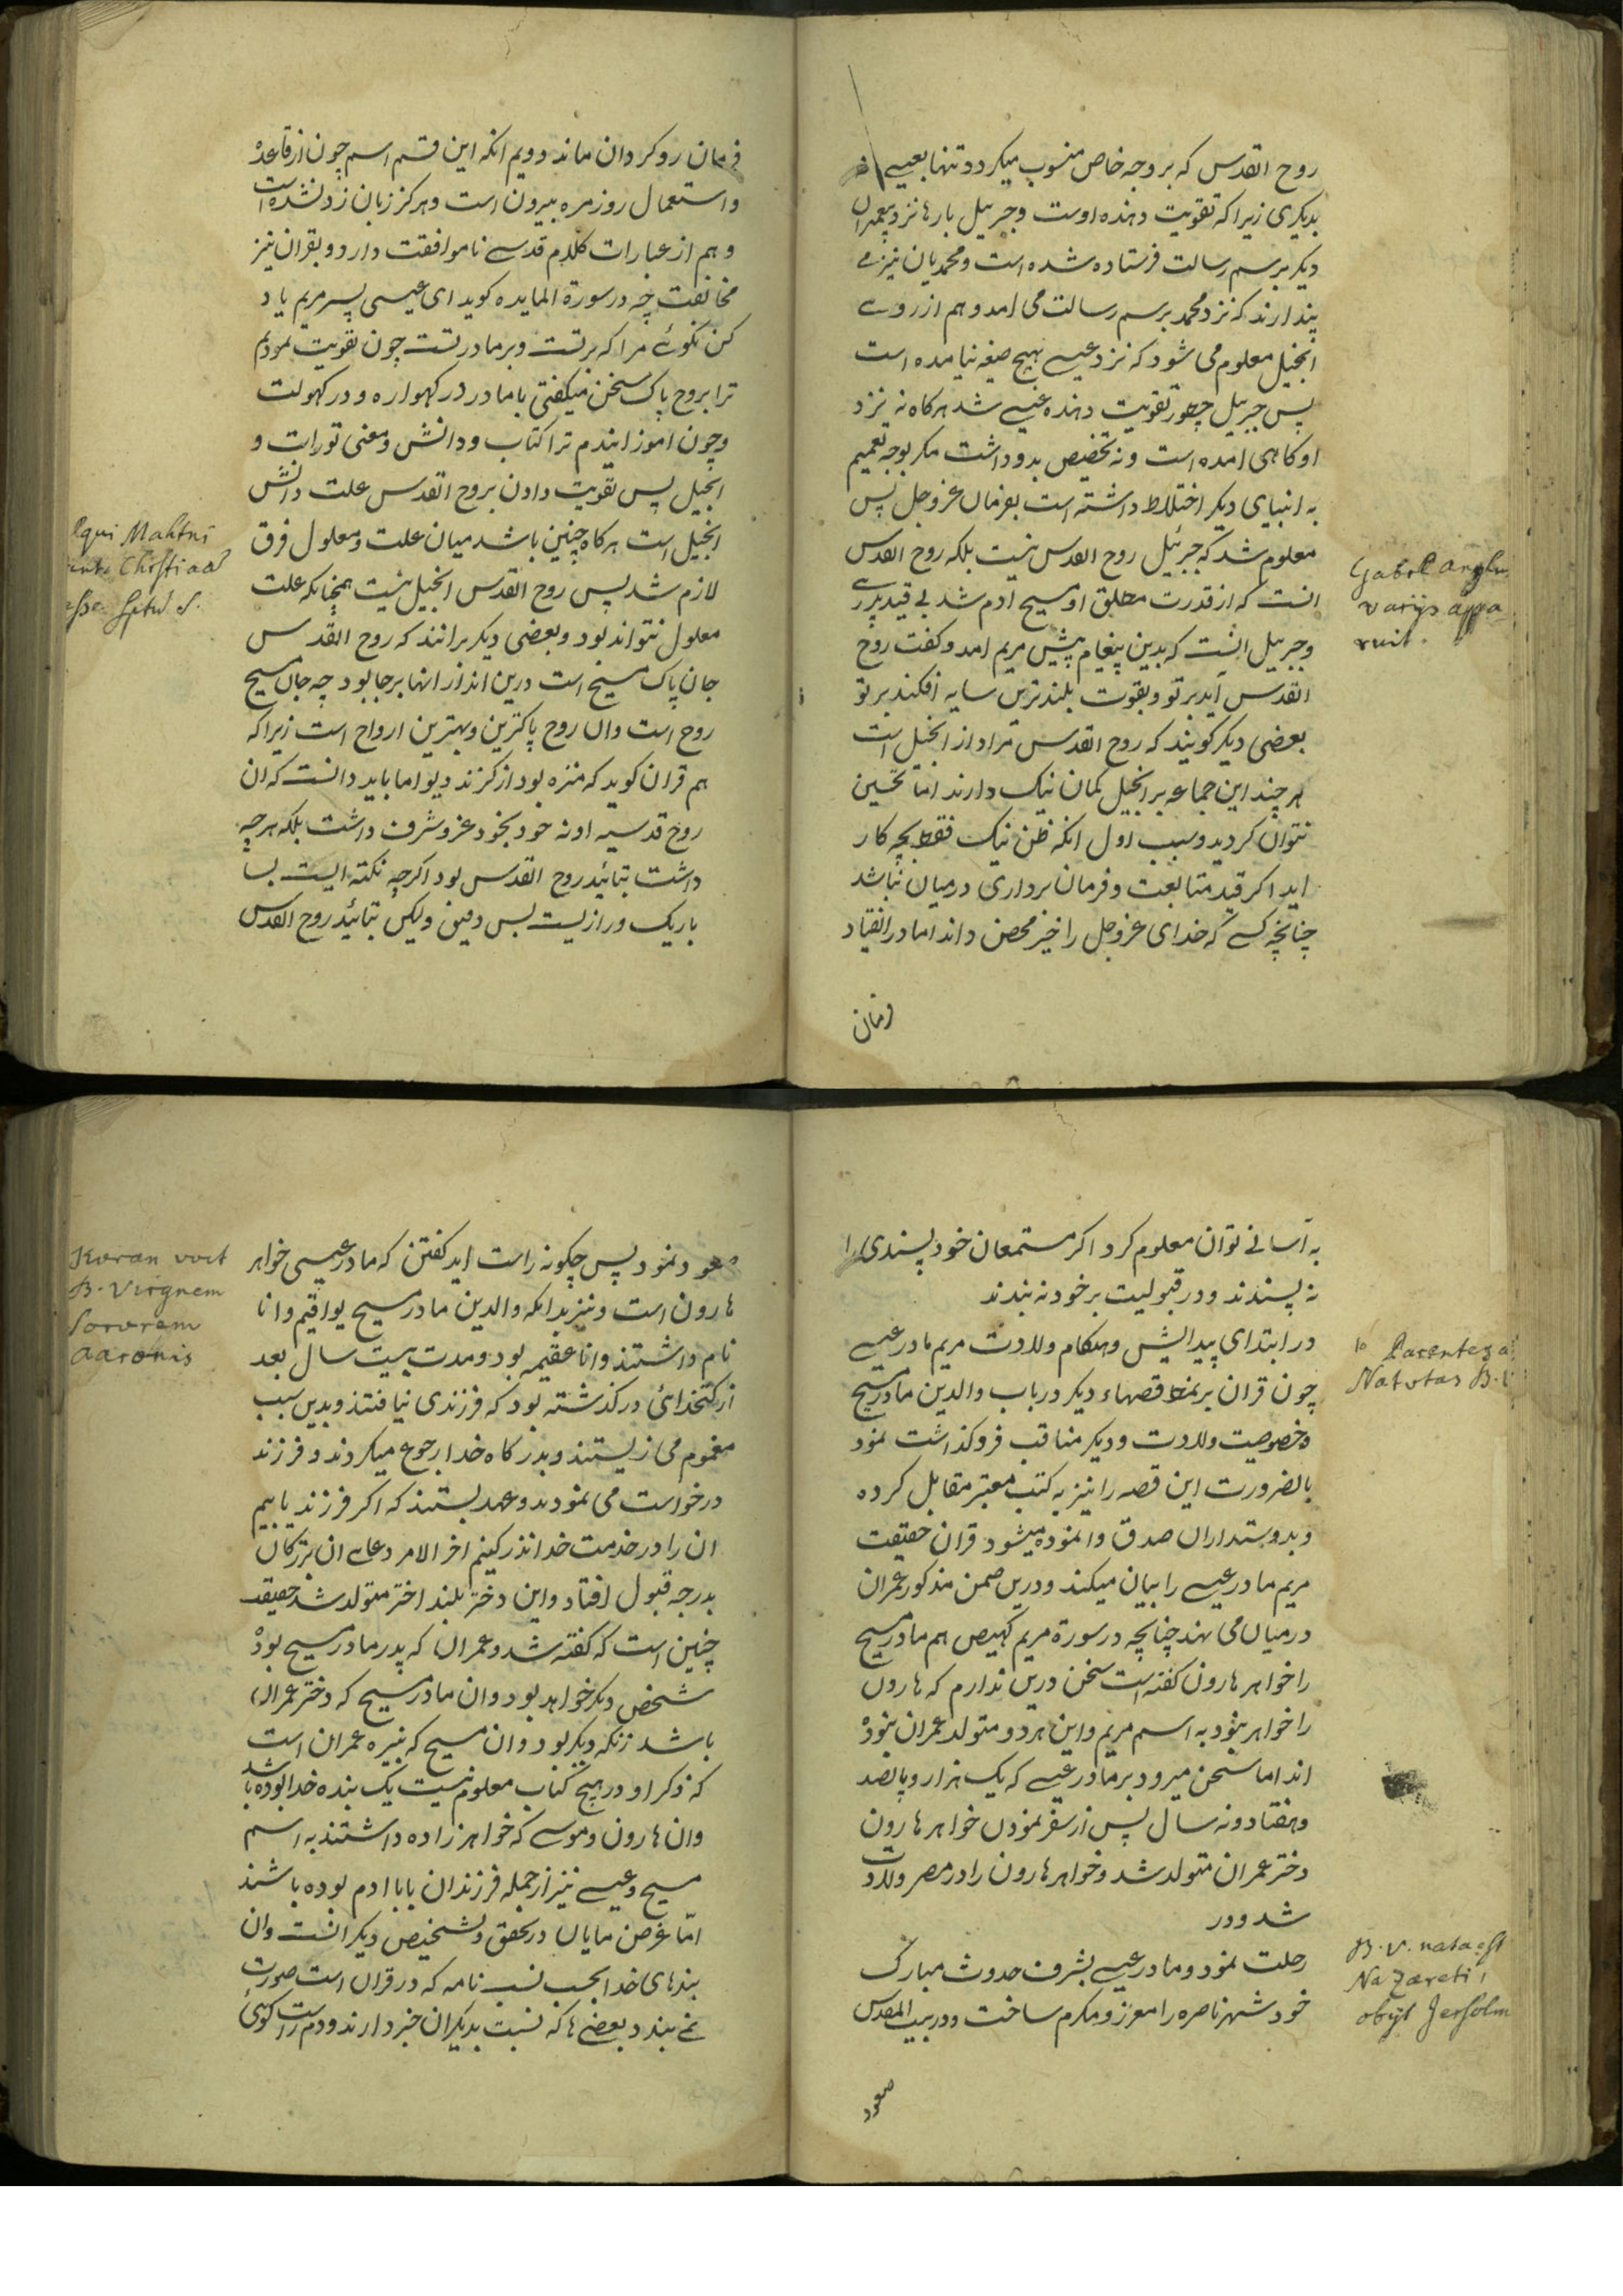 روح القدس که بر وجه خاص منسوب میکردد تنها بعیسے نه
بدیکری زیرا که تقویت دهنده اوست و جبرییل بارها نزد پیغمبران
دیکر برسم رسالت فرستاده شده است و محمدیان نیز مے
پندارند که نزد محمد برسم رسالت می امد و هم از روے
انجیل معلوم می شود که نزد عیسے بهیچ صیغه نیامده است
پس جبرییل چطور تقویت دهنده عیسے شد هرکاه نه نزد
او کاهی امده است و نه تخصیص بدو داشت مکر بوجه تعمیم
به انبیای دیکر اختلاط داشته است بفرمان عز و جل پس
معلوم شد که جبرئیل روح القدس نیست بلکه روح القدس
انست که از قدرت مطلق او مسیح ادم شد بے قید پدرے
و جبرییل انست که بدین پیغام پیش مریم امد و کفت روح
القدس آید بر تو و بقوت بلندترین سایه افکند بر تو
بعضی دیکر کویند که روح القدس مراد از انجیل است
هر چند این جماعه بر انجیل کمان نیک دارند اما تحسین
نتوان کردید و سبب اول انکه ظن نیک فقط بچه کار
اید اکر قید متابعت و فرمان برداری درمیان نباشد
چنانچه کسے که خدای عز و جل را خیر محض داند اما در انقیاد
فرمان
Gabrl Anglu
varijs appa
ruit.
فرمان روکردان ماند دویم انکه این قسم اسم چون از قاعده
و استعمال روزمره بیرون است و هرکز زبان زد نشده است
و هم از عبارات کلام قدسے ناموافقت دارد و بقران نیز
مخالفت چه در سورة المایده کوید ای عیسی پسر مریم یاد
کن نکوئے مرا که بر تست و بر مادر تست چون تقویت نمودم
ترا بروح پاک سخن میکفتی با مادر در کهواره و در کهولت
و چون اموزانیدم ترا کتاب و دانش و معنی تورات و
انجیل پس تقویت دادن بروح القدس علت دانش
انجیل است هرکاه چنین باشد میان علت و معلول فرق
لازم شد پس روح القدس انجیل نیست همچنانکه علت
معلول نتواند بود و بعضی دیکر برانند که روح القدس
جان پاک مسیح است درین انداز انها برجا بود چه جان مسیح
روح است وان روح پاکترین و بهترین ارواح است زیرا که
هم قران کوید که منزه بود از کزند دیو اما باید دانست که ان
روح قدسیه او نه خود بخود عز و شرف داشت بلکه هرچه
داشت بتائید روح القدس بود اکرچه نکته ایست بسا
باریک و رازیست بس دقیق ولیکن بتائید روح القدس
به آسانے توان معلوم کرد اکر مستمعان خود پسندی را
نه پسندند و در قبولیت بر خود نه بندند
در ابتدای پیدایش و هنکام ولادت مریم مادر عیسے
چون قران بر نمط قصهاء دیکر در باب والدین مادر مسیح
و خصوصیت ولادت و دیکر مناقب فروکذاشت نمود
بالضرورت این قصه را نیز به کتب معتبر مقابل کرده
و بدوستداران صدق وانموده میشود قران حقیقت
مریم مادر عیسے را بیان میکند و درین ضمن مذکور عمران
درمیان می نهد چنانچه در سورة مریم کهیعص هم مادر مسیح
را خواهر هارون کفته است سخن درین ندارم که هارون
را خواهر بود به اسم مریم و این هر دو متولد عمران بوده
اند اما سخن میرود بر مادر عیسے که یک هزار و پانصد
و هفتاد و نه سال پس از سفر نمودن خواهر هارون
دختر عمران متولد شد و خواهر هارون را در مصر ولادت
شد و در
رحلت نمود و مادر عیسے بشرف حدوث مبارک
خود شهر ناصره را معزز و مکرم ساخت و در بیت المقدس
صعود
Parentes a
Natvtas B. V
B. V. nata est
Nazareti,
obijt Jersolm
صعود نمود پس چکونه راست اید کفتن که مادر عیسی خواهر
هارون است و نیز بدانکه والدین مادر مسیح یواقیم و انا
نام داشتند و انا عقیمه بود و مدت بیست سال بعد
از کتخدائی درکذشته بود که فرزندی نیافتند و بدین سبب
مغموم می زیستند و بدرکاه خدا رجوع میکردند و فرزند
درخواست می نمودند و عهد بستند که اکر فرزند یابیم
ان را در خدمت خدا نذر کنیم اخر الامر دعاے ان بزرکان
بدرجه قبول افتاد و این دختر بلند اختر متولد شد حقیقت
چنین است که کفته شد و عمران که پدر مادر مسیح بود
شخص دیکر خواهد بود و ان مادر مسیح که دختر عمران
باشد زنکه دیکر بود و ان مسیح که نبیره عمران است
که ذکر او در هیچ کتاب معلوم نیست یک بنده خدا بوده باشد
وان هارون و موسے که خواهرزاده داشتند به اسم
مسیح و عیسے نیز از جمله فرزندان بابا ادم بوده باشند
امّا غرض مایان در تحقق و تشخیص دیکر انست وان
بندهای خدا بحسب نسب نامه که در قران است صورت
نمے بندد بعضے ها که نسبت بدیکران خبر دارند و دم راست کوئی
Koran voct
B. Virgnem
Sororem
Aaronis